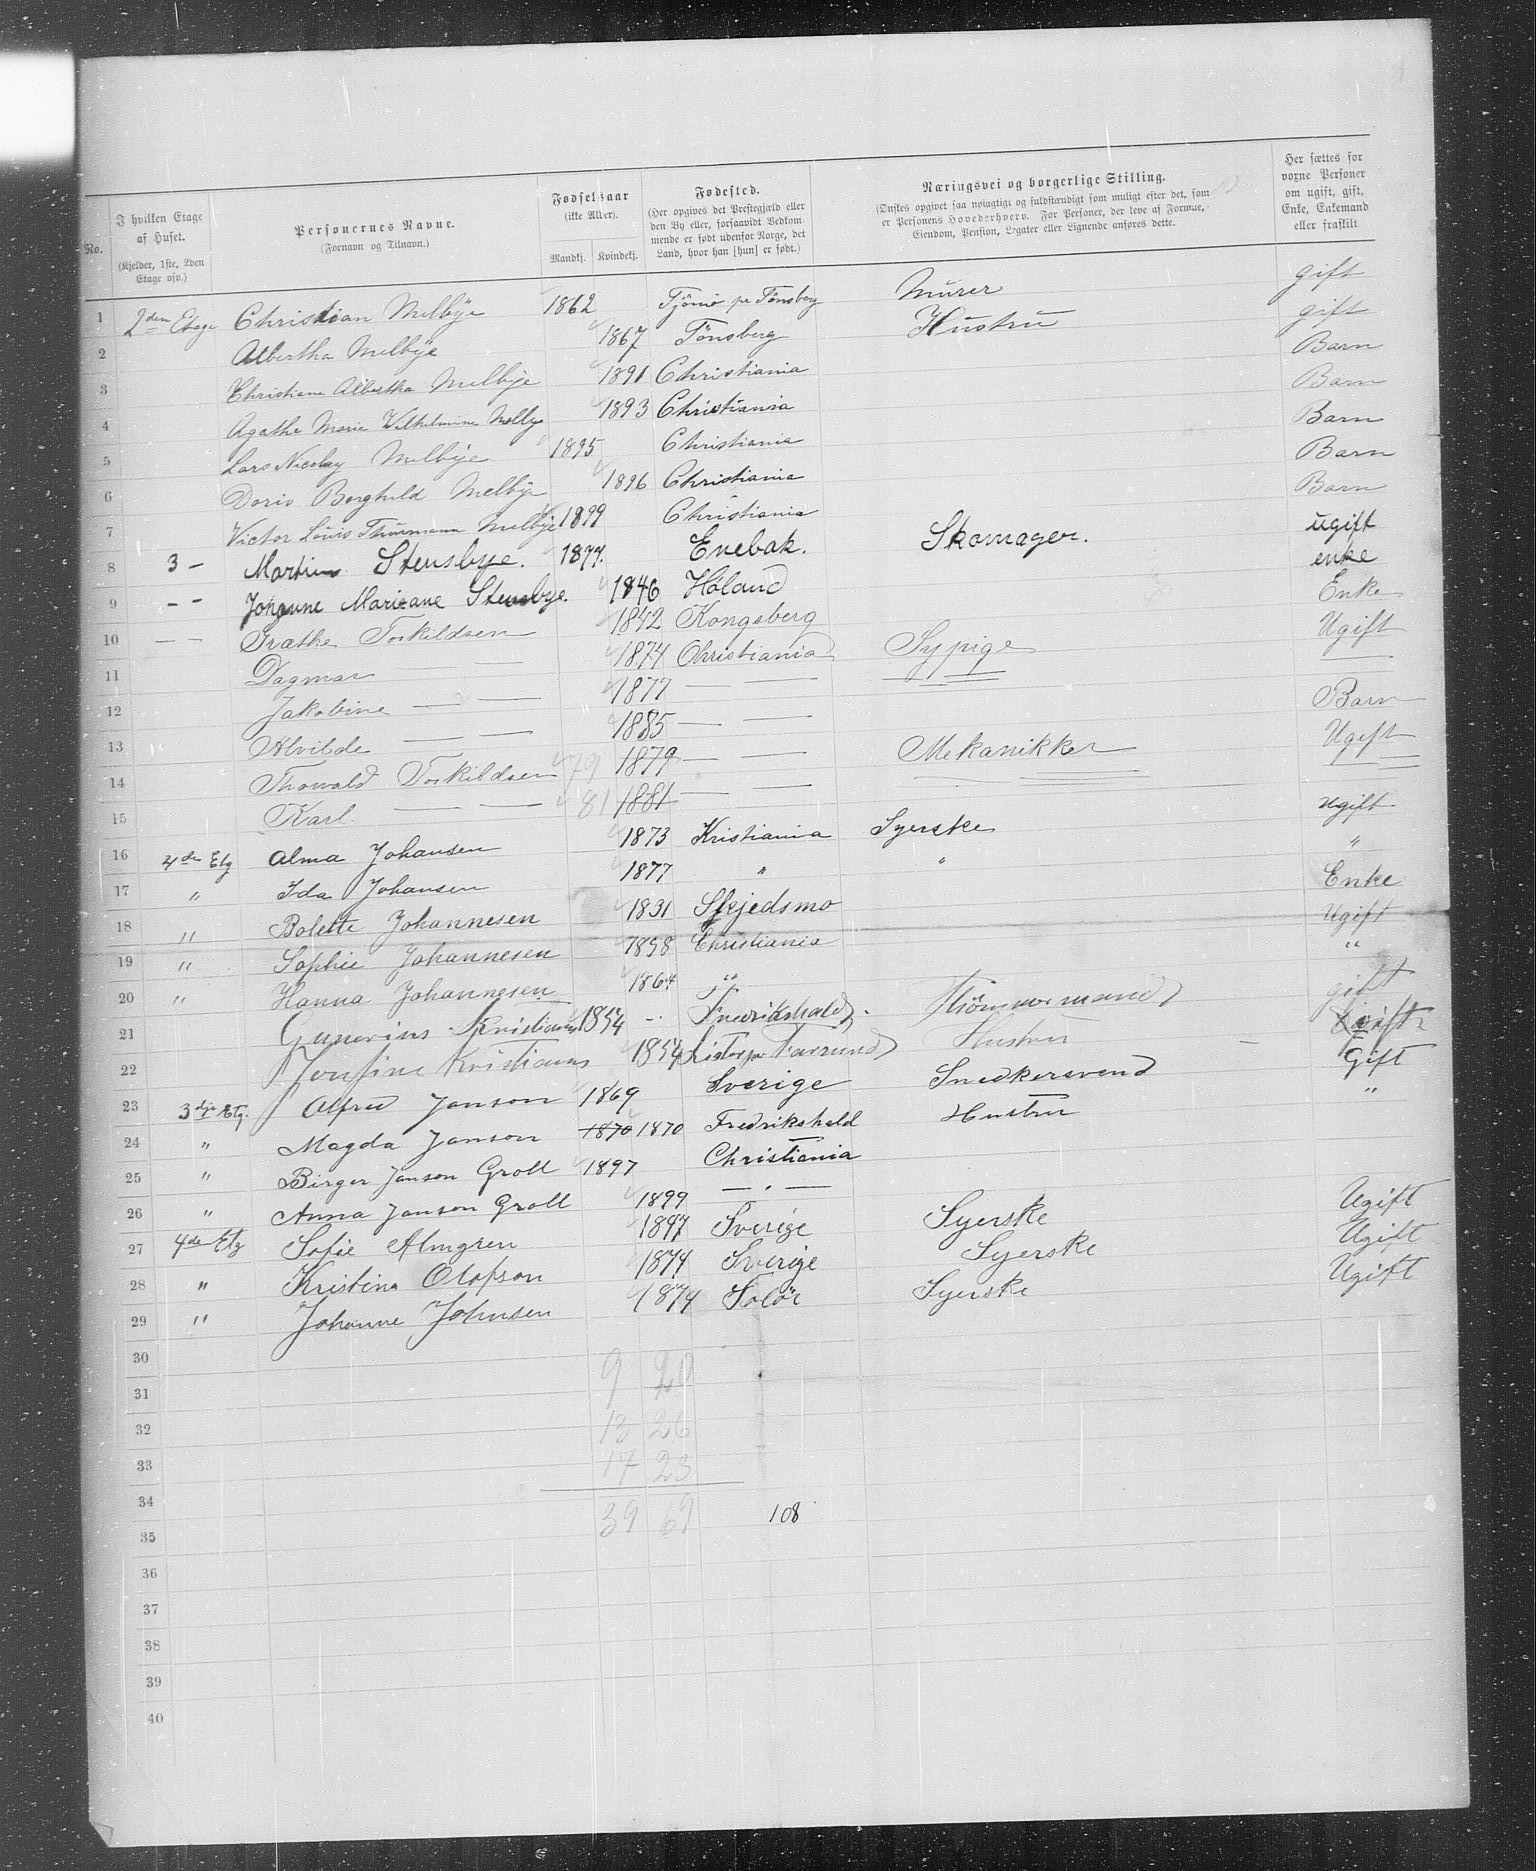 No. | I hvilken Etage af Huset. (Kjelder, 1ste, 2den Etage osv.) | Personernes Navne. (Fornavn og Tilnavn.) | Fødselsaar (ikke Alder). Mandkj. Kvindekj. | Fødested. (Her opgives det Prestegjæld eller den By eller, forsaavidt Vedkommende er født udenfor Norge, det Land, hvor han [hun] er født.) | Næringsvei og borgerlige Stilling. (Ønstes opgivet saa nøiagtigt og fuldstændigt som muligt efter det, som er Personens Hovederhverv. For Personer, der leve af Formue, Eiendom, Pension, Legater eller Lignende anføres dette. | Her sættes for voxne Personer om ugift, gift, Enke, Enkemand eller fraskilt
1 2den Etage Christian Melbÿe 1862 Tjömö pr Tönsberg Mürer gift
2 Albertha Melbÿe 1867 Tönsberg Hüstrü gift
3 Christiane Albertha Melbÿe 1891 Christiania Barn
4 Agathe Marie Vilhelmine Melbye 1893 Christiania Barn
5 Lars Nicolay Melbÿe 1895 Christiania Barn
6 Doris Borghild Melbÿe 1896 Christiania Barn
7 Victor Louis Thürmann Melbÿe 1899 Christiania Barn
8 3 — Martin Stensbye. 1877. Enebak. Skomager. ugift
9 — — Johanne Mariane Stensbye. 1846 Høland enke
10 — — Grathe Torkildsen 1842 Kongsberg Enke
11 Dagmar — 1874 Christiania Sypige Ugift
12 Jakobine — — 1877 — — — — —
13 Alvilde — — 1885 — — Barn
14 Thorvald Torkildsen 79 1879 — — Mekanikker Ugift
15 Karl — — 81 1881 — — — — —
16 4de Etg Alma Johansen 1873 Kristiania Syerske ugift
17 " Ida Johansen 1877 " " "
18 " Bolette Johannesen 1831 Skjedsmo Enke
19 " Sophie Johannesen 1858 Christiania Ugift
20 " Hanna Johannesen 1864 " "
21 Gunerius Kristians 1854 — Fredrikshald. gift
22 Josefine Kristians 1854 Hustru
23 3dje Etg. Alfred Janson 1869 Sverige Snedkersvend Gift
24 " Magda Janson 1870 1870 Fredrikshald Hustru "
25 " Birger Janson Groll 1897 Christiania
26 " Anna Janson Groll 1899 — " —
27 4de Etg Sofie Almgren 1877 Sverige Syerske Ugift
28 " Kristina Olofson 1874 Sverige Syerske Ugift
29 " Johanne Johnsen 1874 Solör Syerske Ugift
30 9 20
31
32 13 26
33 17 23
34
35 39 69 108
36
37
38
39
40